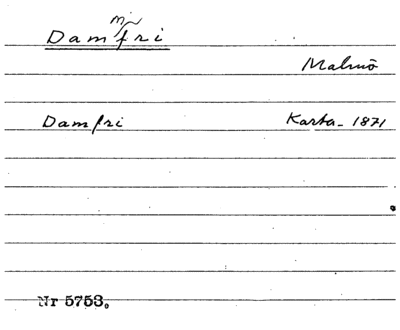 m
Damfri
Malmö
Damfri Karta - 1871
Nr 5753.